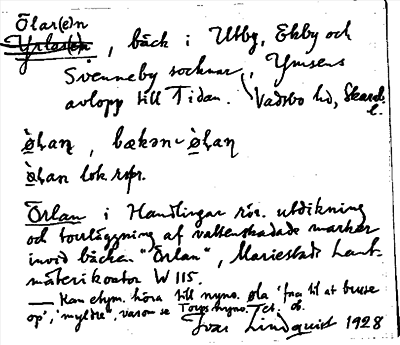 Ölar(e)n
Yrlar(e)n, bäck i Utby, Ekby och
Svenneby socknar, Ymsens
avlopp till Tidan. Vadsbo hd, Skarab.
l.
bækən-
lok. rspr.
Örlan i Handlingar rör. utdikning
och torrläggning af vattenskadade marker
invid bäcken "Örlan", Mariestads Lant-
mäterikontor W 115.
— Kan etym. höra till nyno. øla 'fra til at bruse
op', 'myldre', varom se Torps nyno. et. ob.
Ivar Lindquist 1928